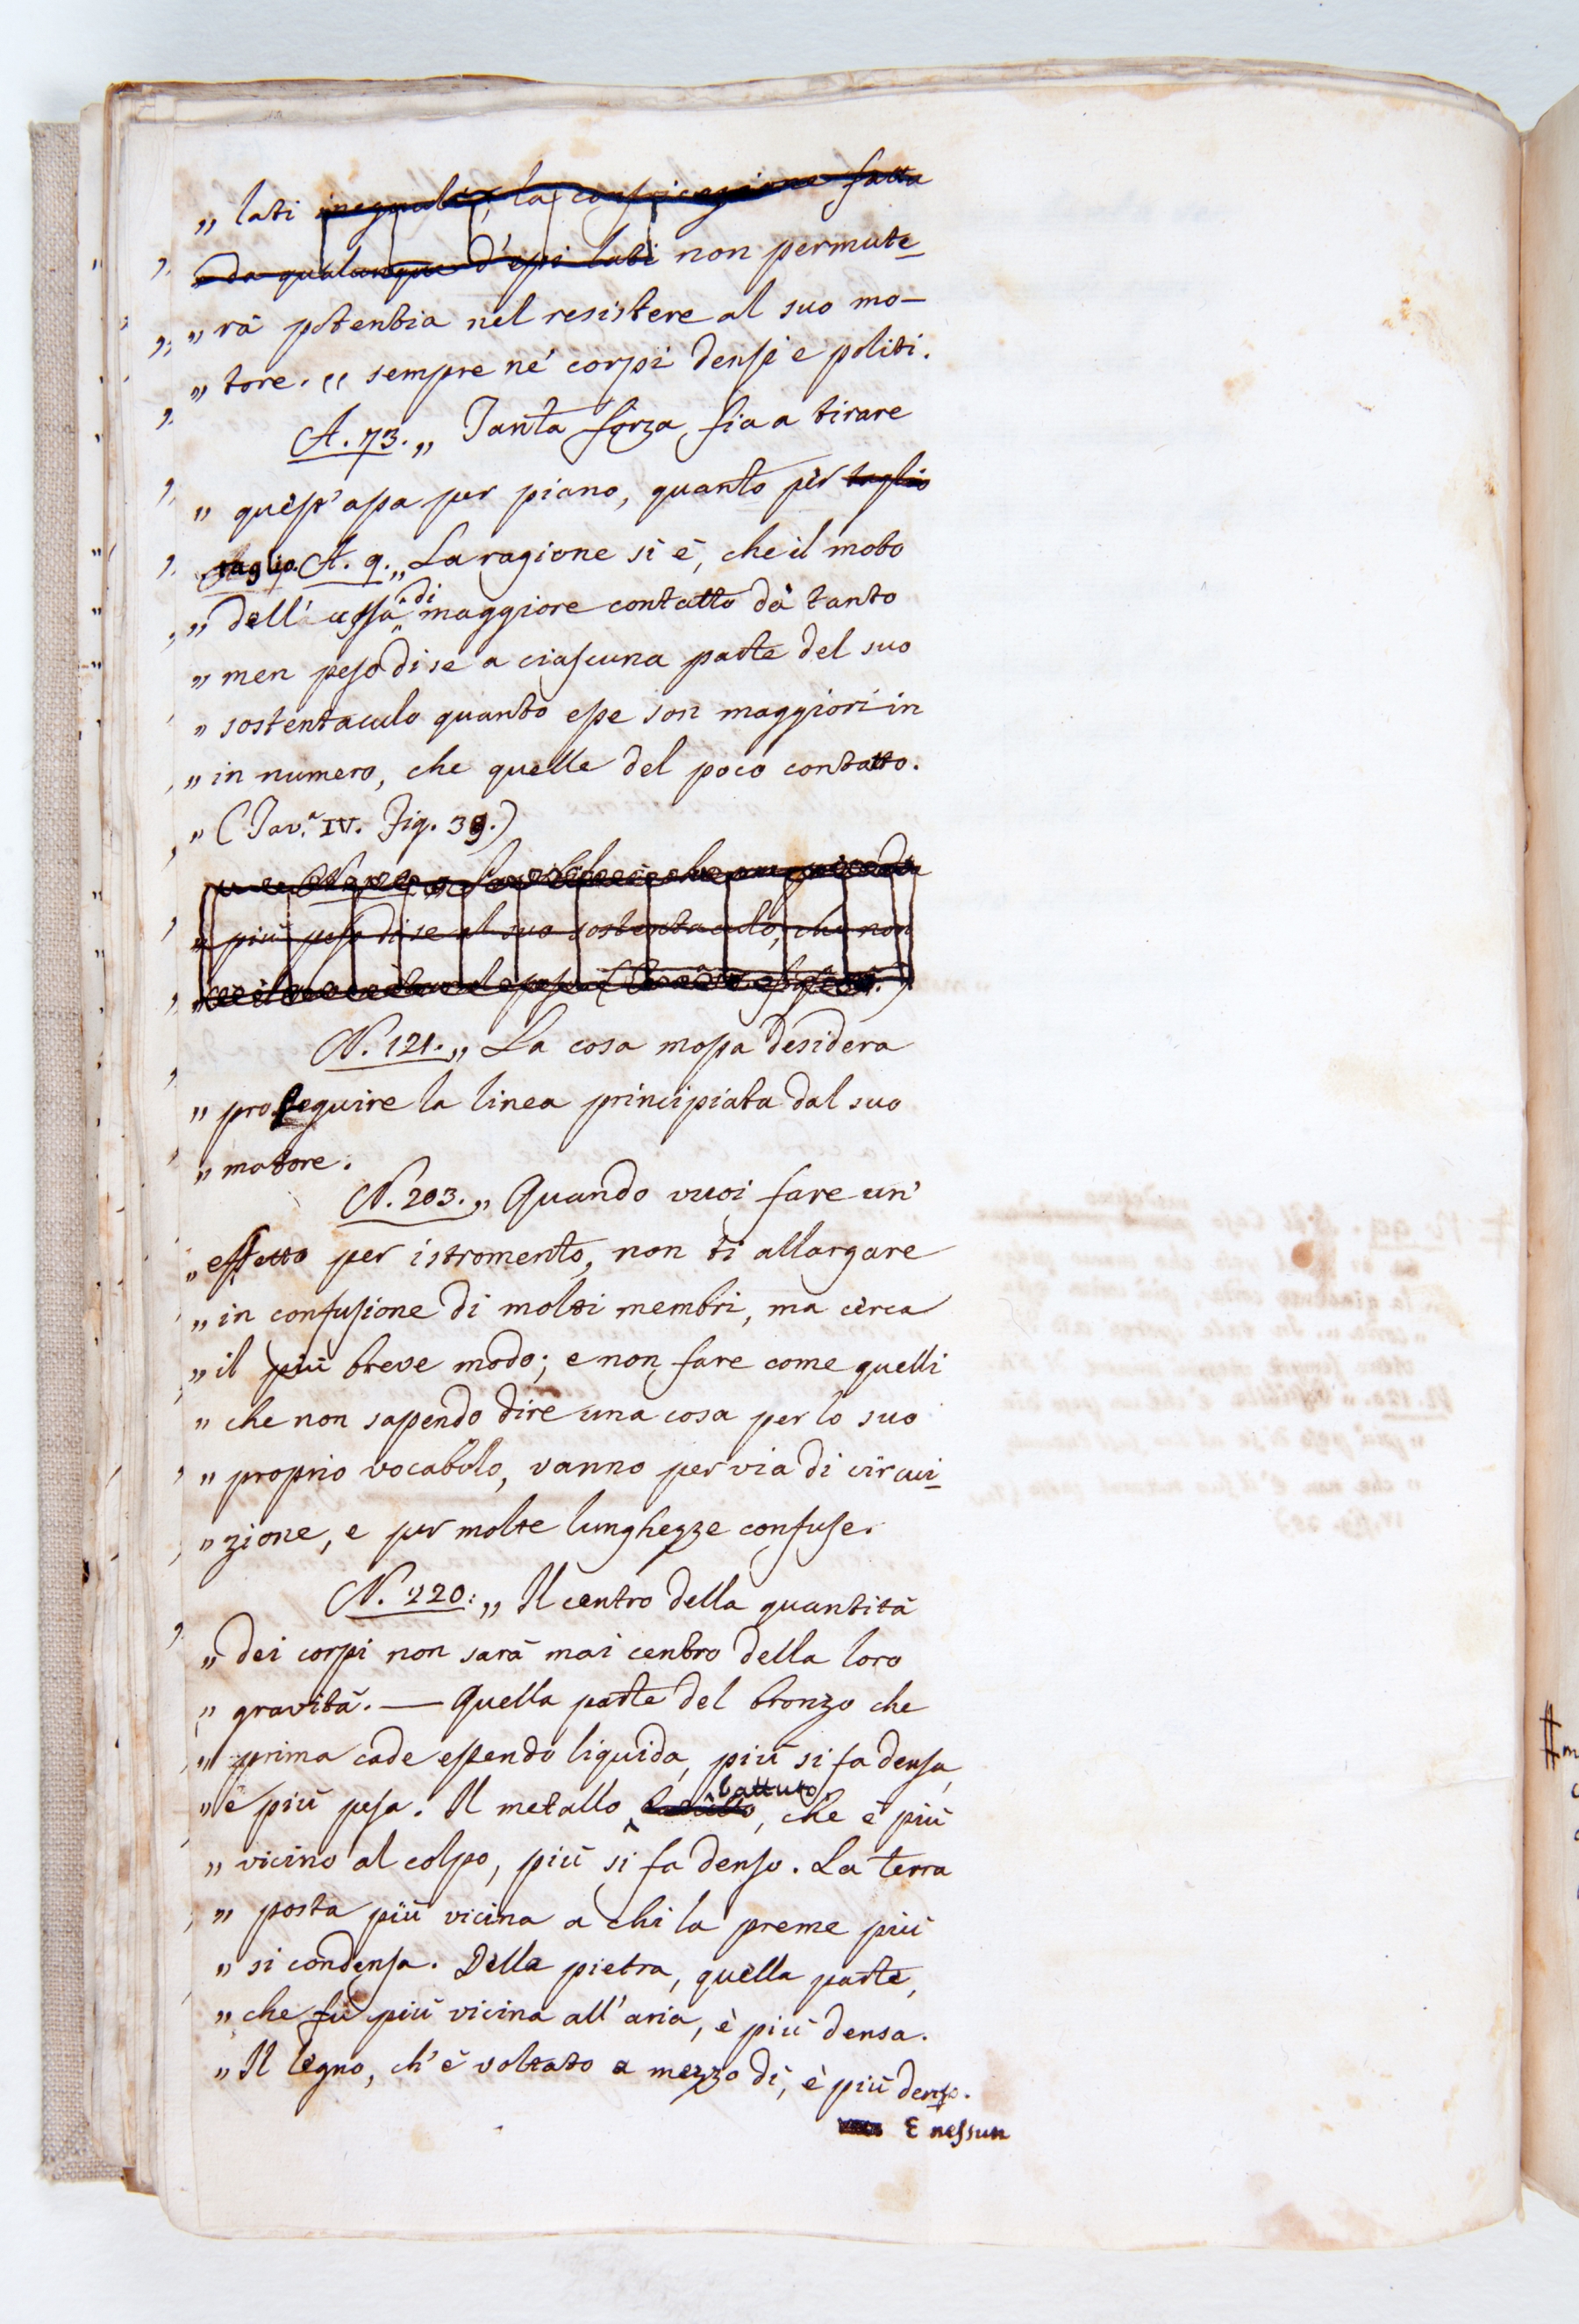 „ lati ineguali, la confricazione fatta
„ da qualunque d'essi lati non permute-
„ rà potentia nel resistere al suo mo-
„ tore. „ sempre ne' corpi densi e politi.
A. 73. „ Tanta forza fia a tirare
„ quest'assa per piano, quanto per taglio
taglio. A. 9. „ La ragione si è, che il moto
„ dell'assa di maggiore contatto dà tanto
„ men peso di se a ciascuna parte del suo
„ sostentaculo quanto esse son maggiori in
„ in numero, che quelle del poco contatto.
„ (Tav.ª IV. Fig. 39.)
„ più peso di se al suo sostentaculo, che non
N. 121. „ La cosa mossa desidera
„ proseguire la linea principiata dal suo
„ motore.
N. 203. „ Quando vuoi fare un'
„ effetto per istromento, non ti allargare
„ in confusione di molti membri, ma cerca
„ il più breve modo; e non fare come quelli
„ che non sapendo dire una cosa per lo suo
„ proprio vocabolo, vanno per via di circui-
„ zione, e per molte lunghezze confuse.
N. 220: „ Il centro della quantità
„ dei corpi non sarà mai centro della loro
„ gravità. — Quella parte del bronzo che
„ prima cade essendo liquida, più si fa densa,
„ è più pesa. Il metallo battuto, che è più
„ vicino al colpo, più si fa denso. La terra
„ posta più vicina a chi la preme più
„ si condensa. Della pietra, quella parte,
„ che fu più vicina all'aria, è più densa.
„ Il legno, ch'è voltato a mezzo dì, è più denso.
E nessun